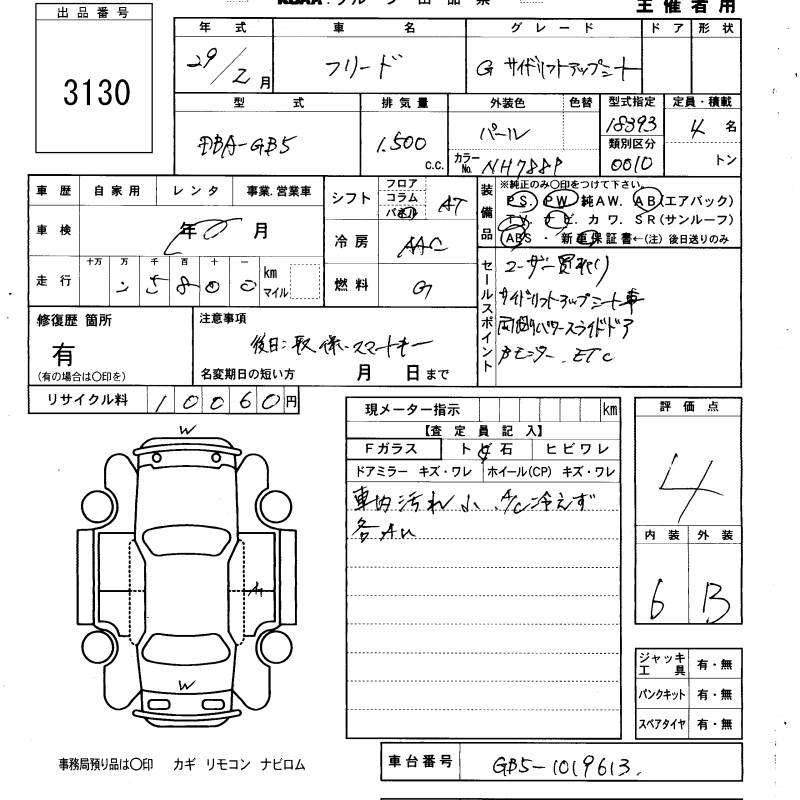 主催者用
出品番号
3130
年式 車名 グレード ドア 形状
29/2月 フリード G サイドリフトアップシート
型式 排気量 外装色 色替 型式指定 定員・積載
DBA-GB5 1,500 c.c. パール 18393 4名
カラーNo. NH788P 類別区分 0010 トン
車歴 自家用 レンタ 事業.営業車
シフト フロア コラム パネル AT
車検 年 月
冷房 AAC
走行 十万 万 千 百 十 一 km マイル
5 8 0 0 0
燃料 G
装備品 ※純正のみ○印をつけて下さい。
PS. PW. 純AW. AB(エアバック)
TV. ナビ. カワ. SR(サンルーフ)
ABS ・ 新車保証書←(注) 後日送りのみ
セールスポイント
ユーザー買取り
サイドリフトアップシート車
両側パワースライドドア
Bモニター. ETC
修復歴 箇所
有
(有の場合は○印を)
注意事項
後日: 取、保、スマートキー
名変期日の短い方 月 日まで
リサイクル料 10060円
現メーター指示 km
【査定員記入】
Fガラス トビ石 ヒビワレ
ドアミラー キズ・ワレ ホイール(CP) キズ・ワレ
車内汚れ小 A/C冷えず
各AU
評価点
4
内装 外装
6 B
W
A1
W
ジャッキ工具 有・無
パンクキット 有・無
スペアタイヤ 有・無
事務局預り品は○印 カギ リモコン ナビロム
車台番号 GB5-1019613.